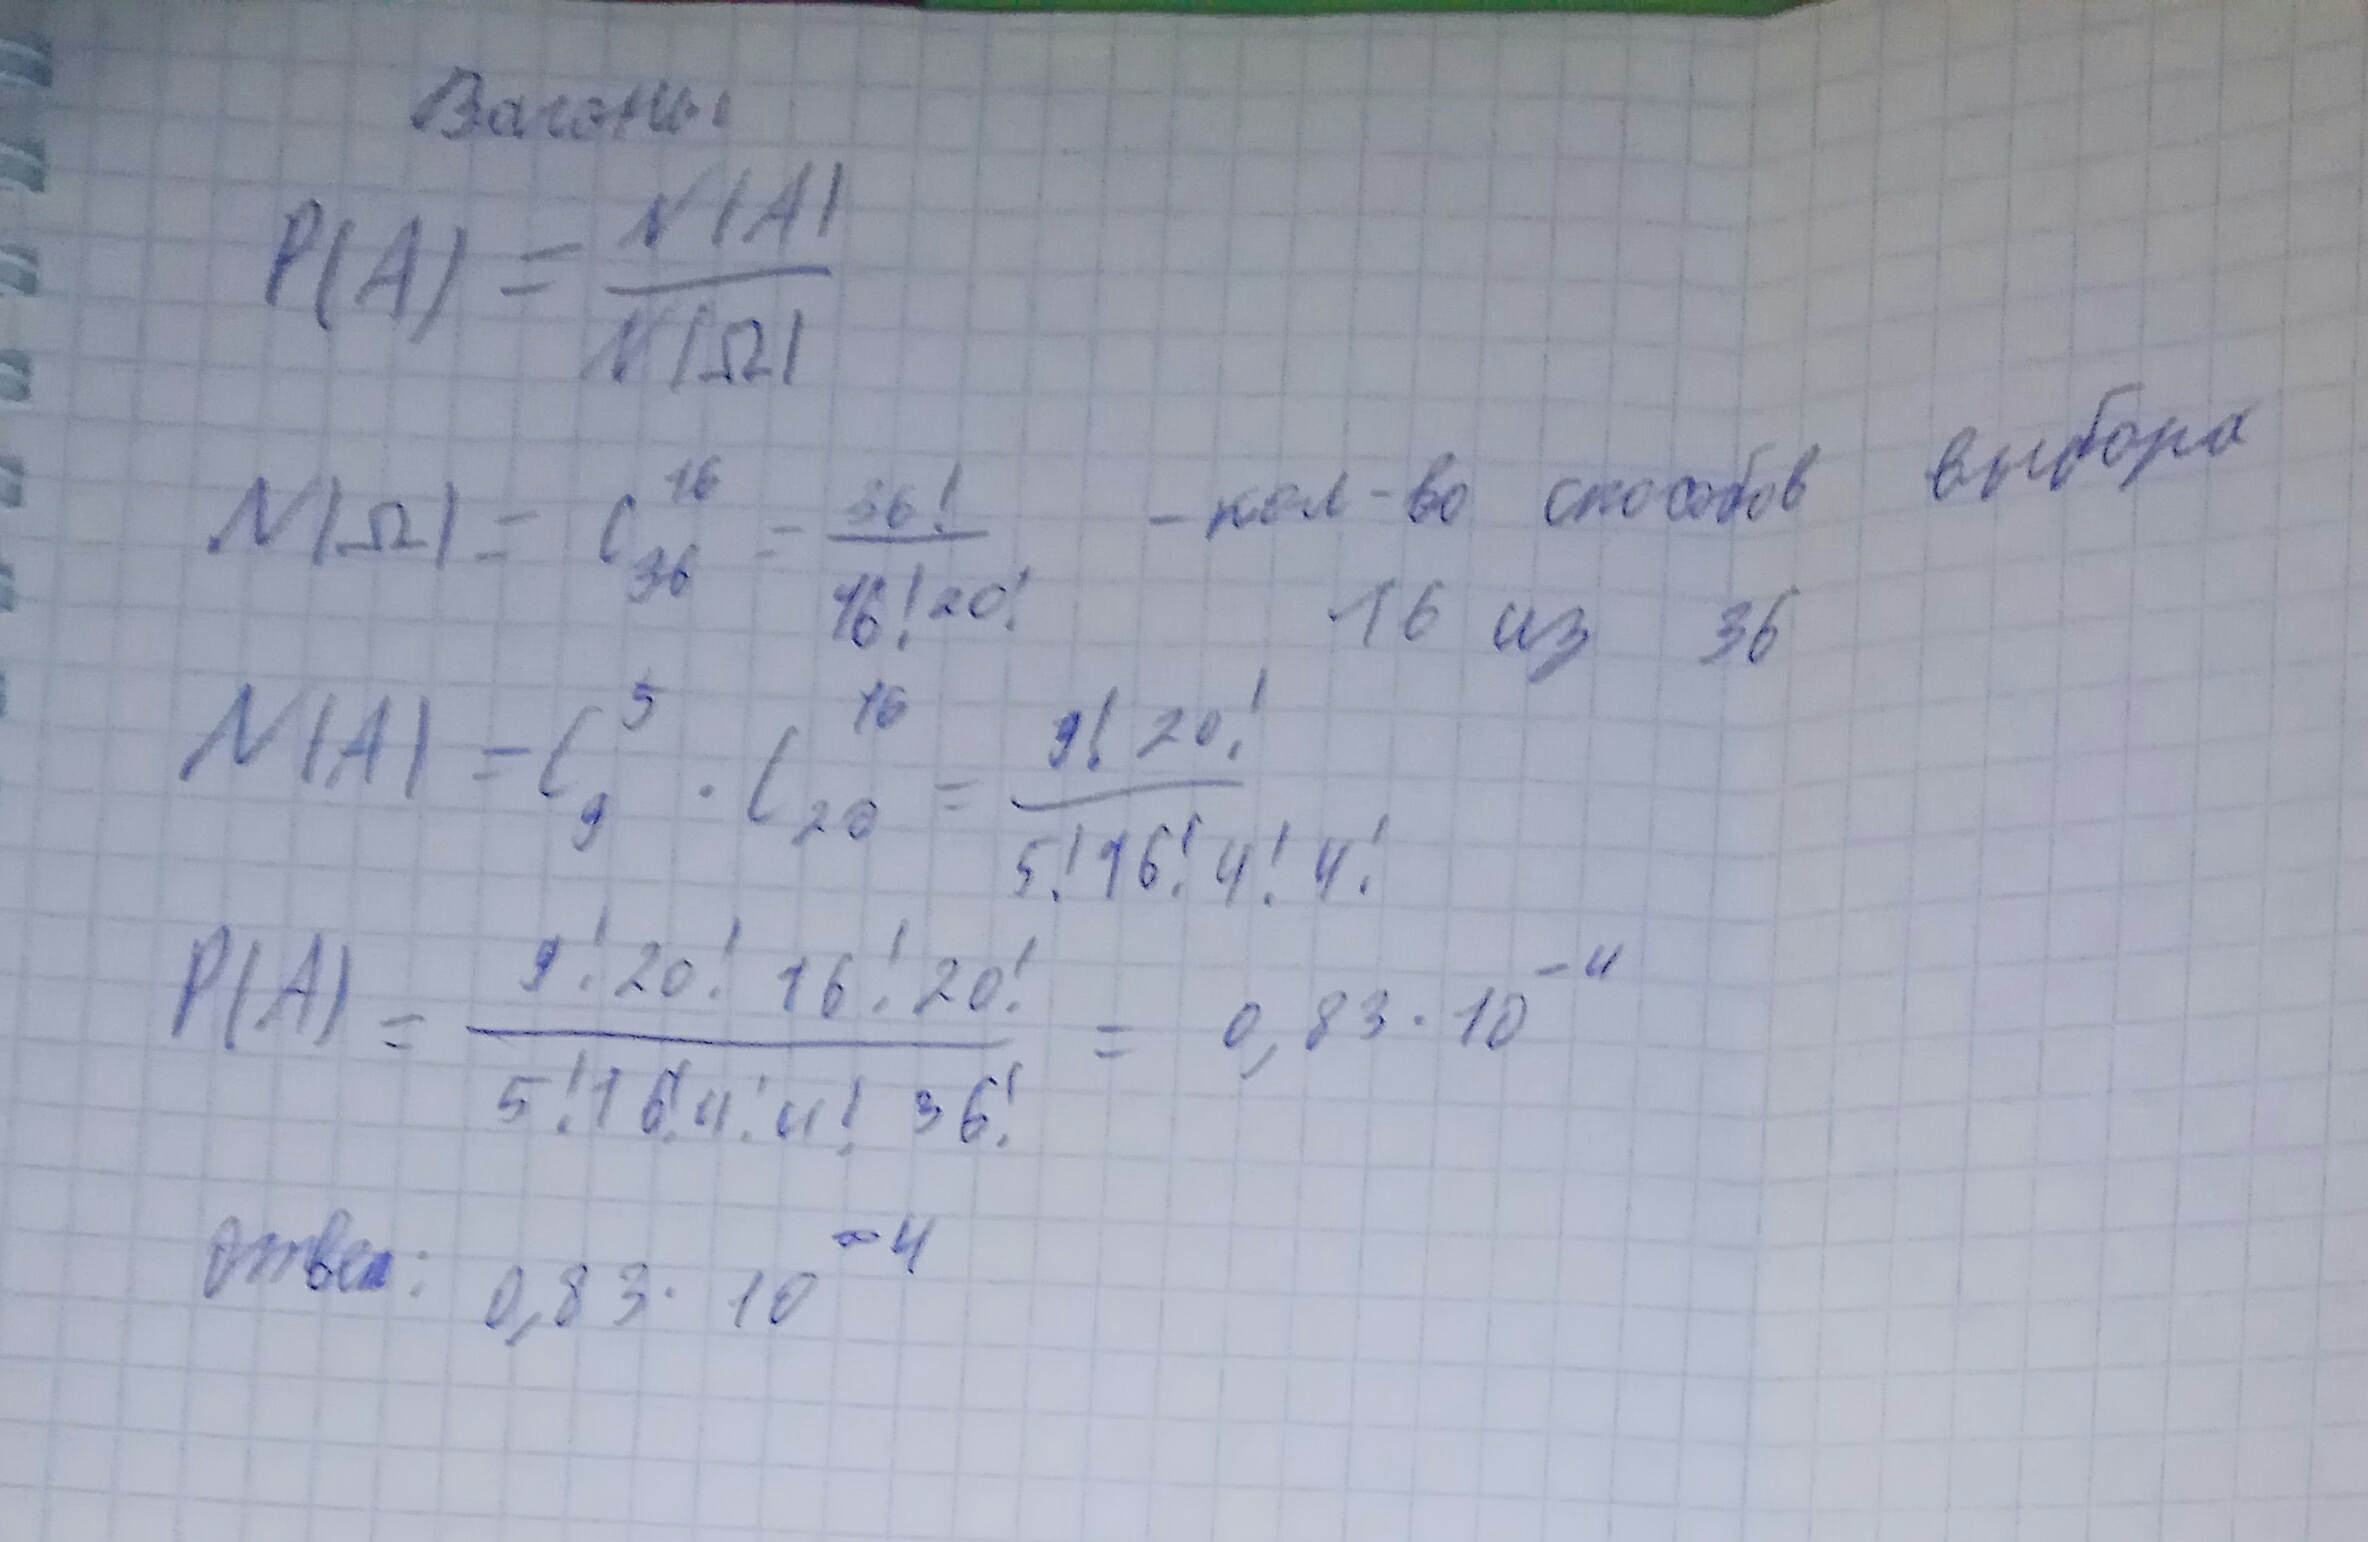 Вагоны
P(A) = N|A| / N|Ω|
N|Ω| = C₃₆¹⁶ = 36! / 16! 20! - кол-во способов выбора
16 из 36
N|A| = C₉⁵ · C₂₀¹⁶ = 9! 20! / 5! 16! 4! 4!
P(A) = 9! 20! 16! 20! / 5! 16! 4! 4! 36! = 0,83 · 10⁻⁴
Ответ: 0,83 · 10⁻⁴